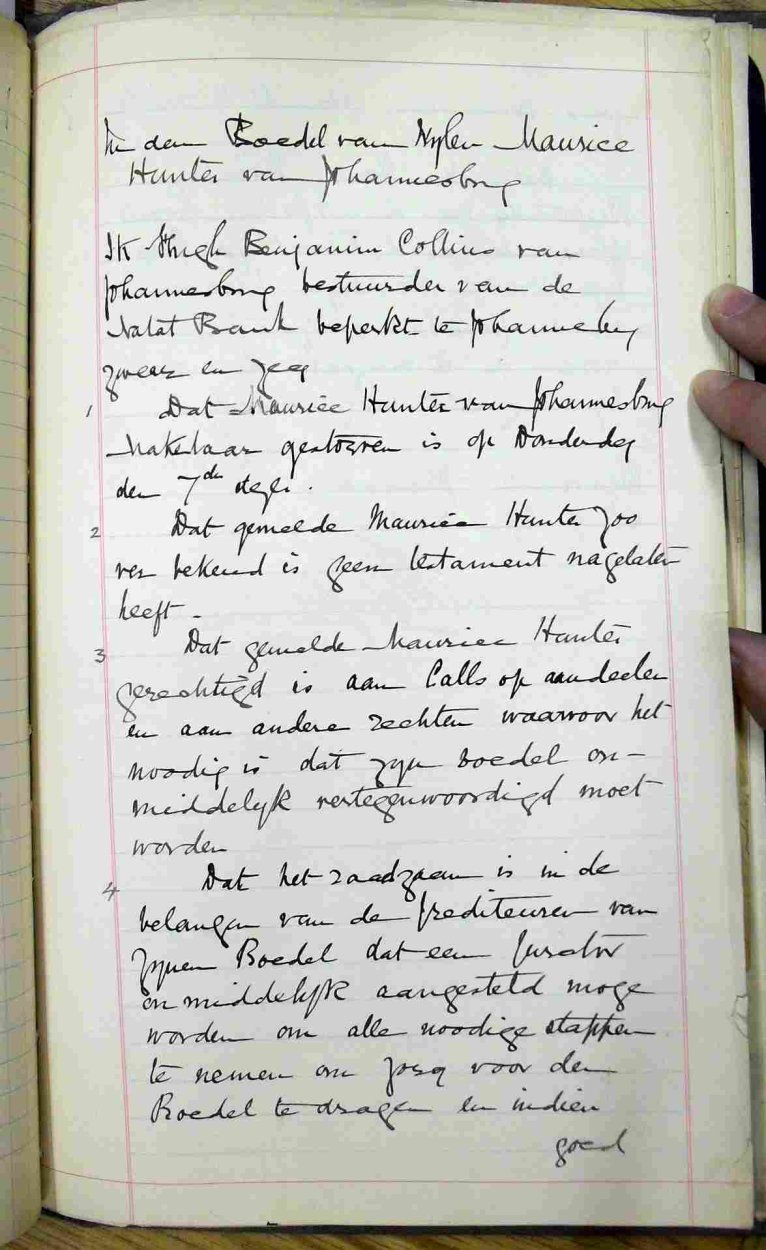 In den Boedel van wylen Maurice
Hunter van Johannesburg
Ik Hugh Benjamin Collins van
Johannesburg bestuurder van de
Natal Bank beperkt te Johannesburg
zweer en zeg
1 Dat Maurice Hunter van Johannesburg
Makelaar gestorven is op Donderdag
den 7den dezer.
2 Dat gemelde Maurice Hunter zoo
ver bekend is geen testament nagelaten
heeft -
3 Dat gemelde Maurice Hunter
gerechtigd is aan Calls op aandeelen
en aan andere rechten waarvoor het
noodig is dat zyn boedel on-
middelyk vertegenwoordigd moet
worden
4 Dat het raadzaam is in de
belangen van de Krediteuren van
zynen Boedel dat een Curator
onmiddelyk aangesteld moge
worden om alle noodige stappen
te nemen om zorg voor den
Boedel te dragen en indien
goed